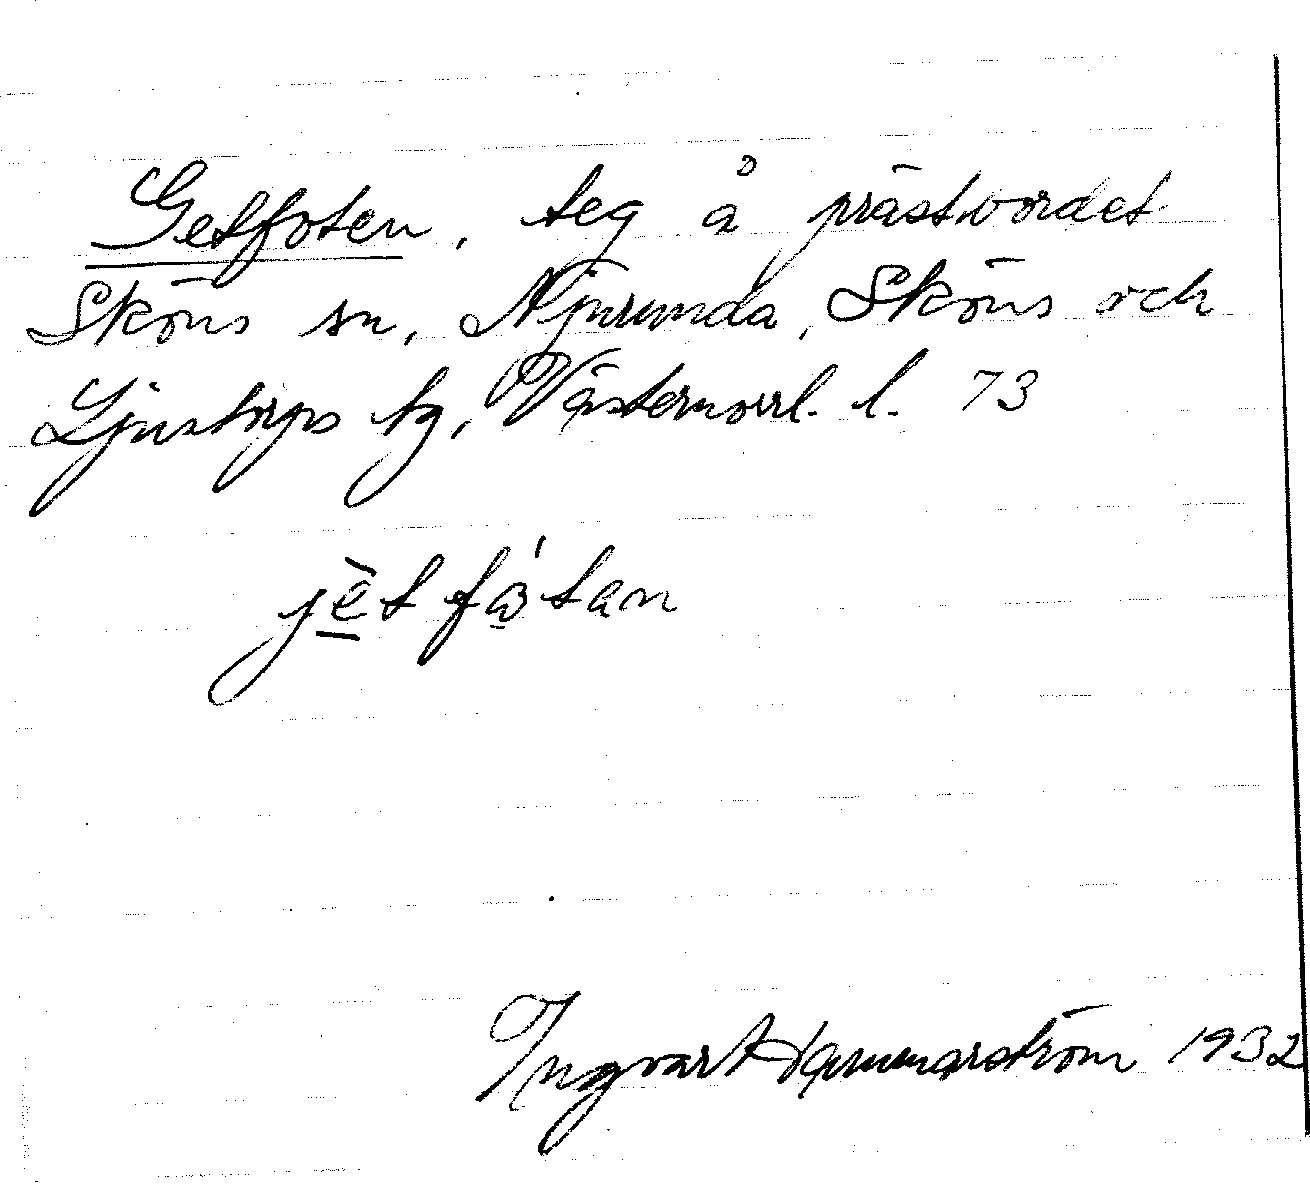 Getfoten, teg å prästbordet
Sköns sn, Njurunda, Sköns och
Ljustorps tg, Västernorrl. l. 73
jètfo̱tan
Ingvar Hammarström 1932